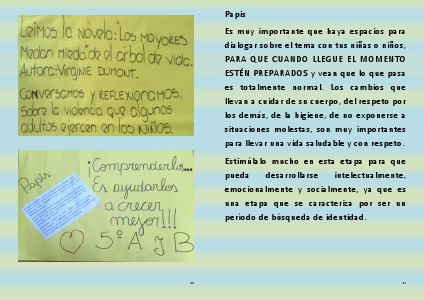 Leimos la novela: "Los mayores
Medan miedo" de el arbol de vida.
Autora: Virginie Dumont.
Conversamos y reflexionamos,
sobre la violencia que algunos
adultos ejercen en los niños.
Papis
¡Comprenderlos...
Es ayudarlos
a crecer
mejor!!!
5º A y B
Papis
Es muy importante que haya espacios para
dialogar sobre el tema con tus niñas o niños,
PARA QUE CUANDO LLEGUE EL MOMENTO
ESTÉN PREPARADOS y vean que lo que pasa
es totalmente normal. Los cambios que
llevan a cuidar de su cuerpo, del respeto por
los demás, de la higiene, de no exponerse a
situaciones molestas, son muy importantes
para llevar una vida saludable y con respeto.
Estimúlalo mucho en esta etapa para que
pueda desarrollarse intelectualmente,
emocionalmente y socialmente, ya que es
una etapa que se caracteriza por ser un
período de búsqueda de identidad.